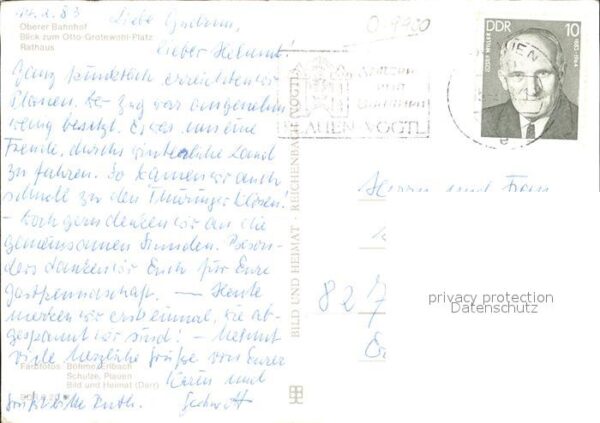 14.2.83
Liebe Gudrun,
Oberer Bahnhof
Blick zum Otto-Grotewohl-Platz
Rathaus
lieber Helmut!
Ganz pünktlich erreichten wir
Plauen. Der Zug war angenehm
wenig besetzt. Es war uns eine
Freude, durchs winterliche Land
zu fahren. So kamen wir auch
schnell zu den Thüringer Klösen!
– Doch gern denken wir an die
gemeinsamen Stunden. Beson-
ders danken wir Euch für Eure
Gastfreundschaft. — Heute
merken wir erst einmal, wie ab-
gespannt wir sind! – Nehmt
viele herzliche Grüße von Eurer
Karin und
Grüßt bitte Ruth.
Farbfotos: Böhme, Erbach
Schulze, Plauen
Bild und Heimat (Darr)
BILD UND HEIMAT · REICHENBACH (VOGTL)
0 9900
PLAUEN VOGTL
DDR 10
Herrn und Frau
827
privacy protection
Datenschutz